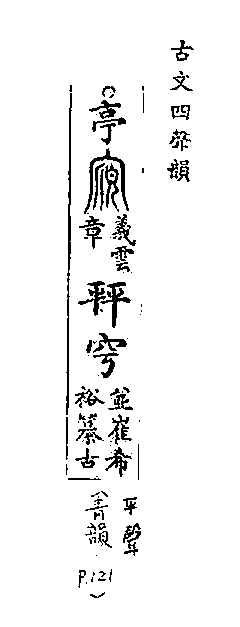 古文四聲韻
亭
義雲
章
並崔希
裕纂古
平聲
(青韻
P.121)